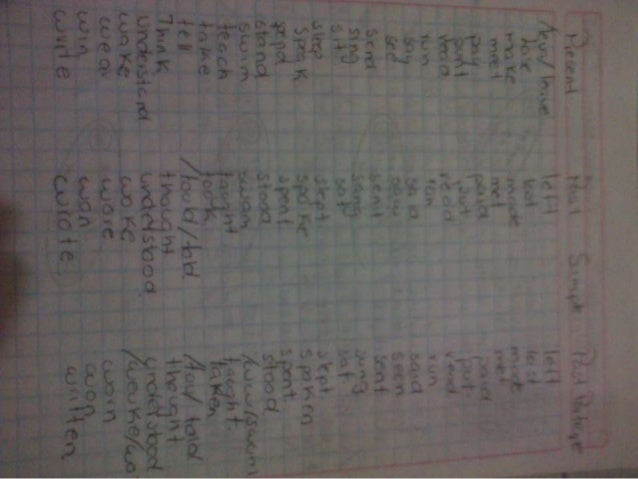 Present Past Simple Past Participle
leave left left
lose lost lost
make made made
meet met met
pay paid paid
put put put
read read read
run ran run
say said said
see saw seen
send sent sent
sing sang sung
sit sat sat
sleep slept slept
speak spoke spoken
spend spent spent
stand stood stood
swim swam swum
teach taught taught
take took taken
tell /tould/told told
Think thought thought
understand understood understood
wake woke
wear wore worn
win won won
write wrote written